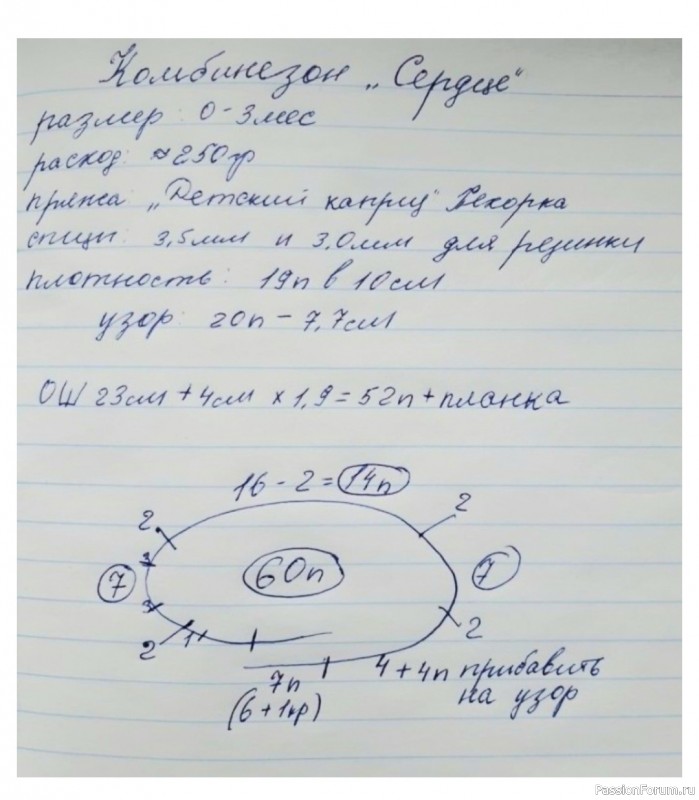 Комбинезон „Сердце"
размер: 0-3мес
расход: ≈250гр
пряжа: „Детский каприз" Пехорка
спицы: 3,5мм и 3,0мм для резинки
плотность: 19п в 10см
узор: 20п - 7,7см
ОШ 23см + 4см × 1,9 = 52п + планка
16 - 2 = 14п
2
2
3
7
60п
7
3
2
1
2
7п
(6 + 1кр)
4 + 4п прибавить
на узор
PassionForum.ru